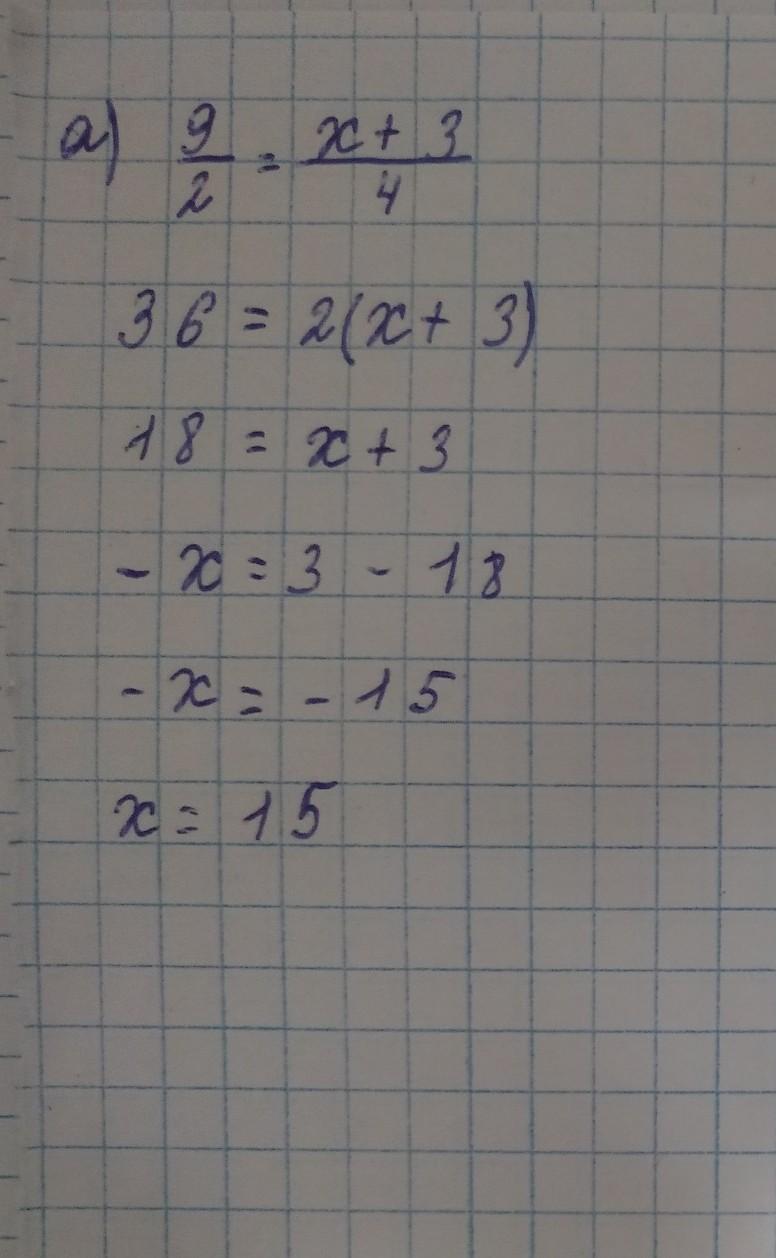 а) 9/2 = (x + 3)/4
36 = 2(x + 3)
18 = x + 3
- x = 3 - 18
- x = - 15
x = 15